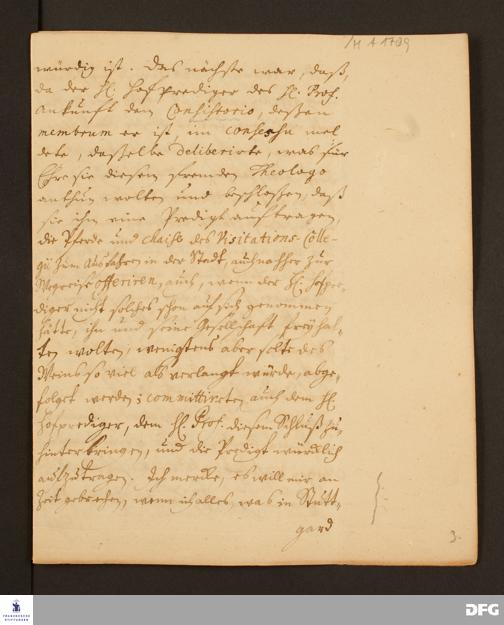 würdig ist. Das nächste war, daß,
da der H. Hofprediger des H. Prof.
Ankunft dem Consistorio, deßen
membrum er ist, im consessu mel
dete, dasselbe deliberirte, was für
Ehre sie diesem fremden Theologo
anthun wolten und beschloßen, daß
sie ihm eine Predigt auftragen,
die Pferde und chaise des Visitations-Colle-
gii zum Ausfahren in der Stadt, auch nachher zur
Wegreise offeriren, auch, wenn der H. Hofpre-
diger nicht solches schon auf sich genommen
hätte, ihn und seine Gesellschaft frey hal-
ten wolten, wenigstens aber solte des
Weins so viel als verlangt würde, abge-
folget werden; committirten auch dem H.
Hofprediger, dem H. Prof. diesen Schluß zu
hinterbringen, und die Predigt würcklich
aufzutragen. Ich mercke, es will mir an
Zeit gebrechen, wenn ich alles, was in Stutt-
gard
3.
FRANCKESCHE
STIFTUNGEN
DFG